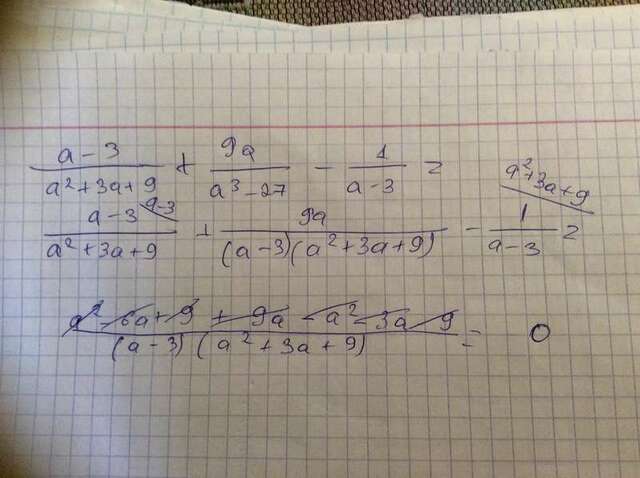 a-3/(a²+3a+9) + 9a/(a³-27) - 1/(a-3) =
a-3 ⟍a-3/(a²+3a+9) + 9a/((a-3)(a²+3a+9)) - 1 ⟍a²+3a+9/(a-3) =
a²-6a+9+9a-a²-3a-9/((a-3)(a²+3a+9)) = 0